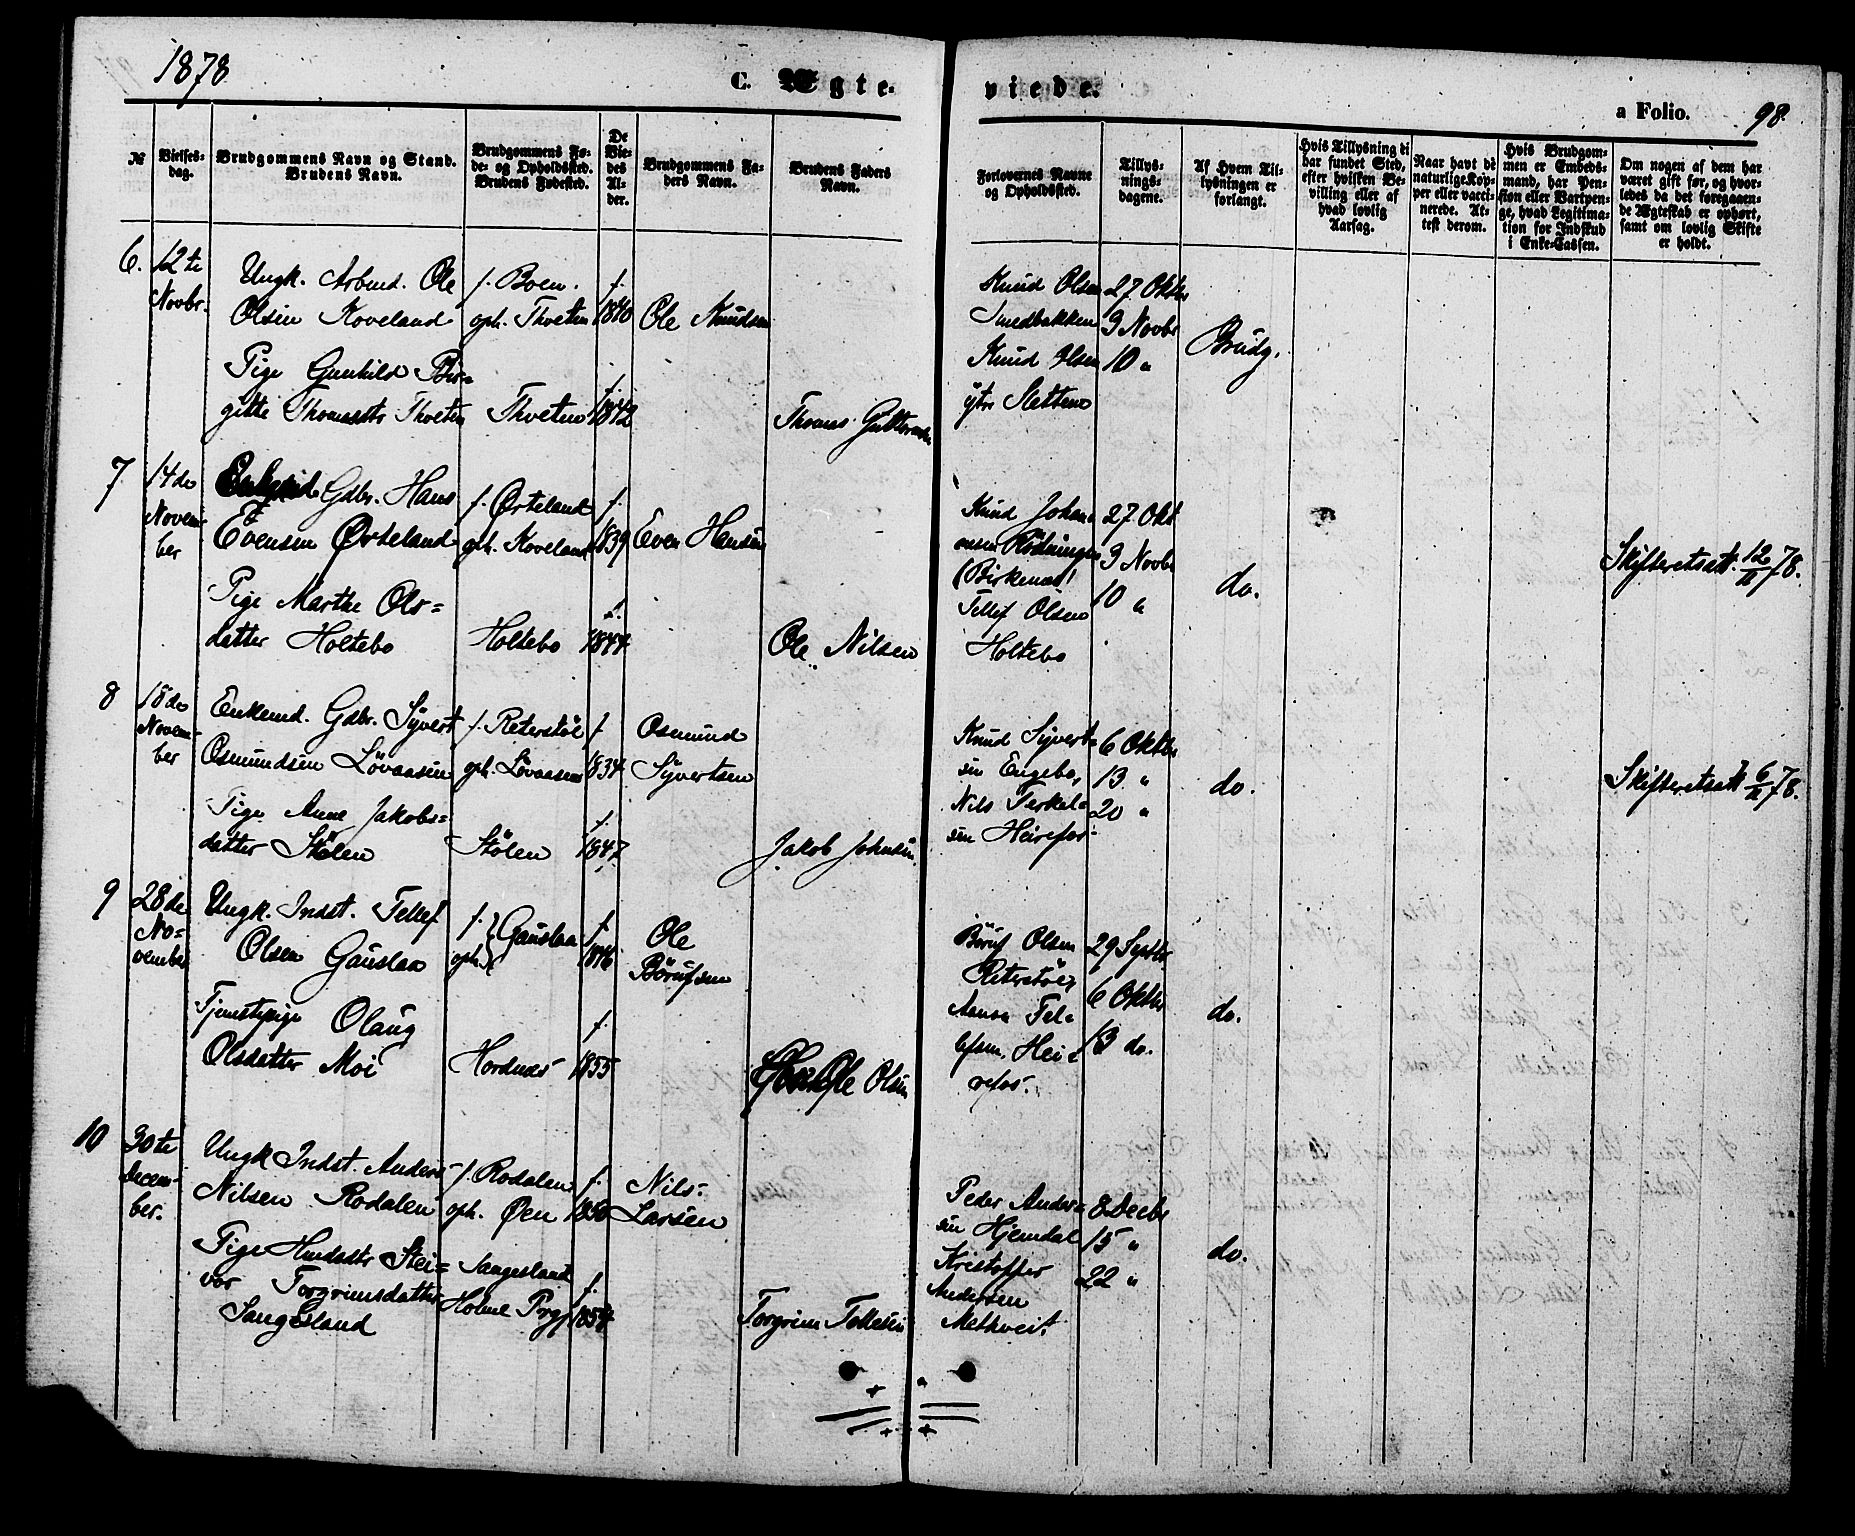 1878
C. Ægte-
viede.
a Folio. 98.
№
Vielses-
dag.
Brudgommens Navn og Stand.
Brudens Navn.
Brudgommens Fø-
de- og Opholdssted.
Brudens Fødested.
De
Vie-
des
Al-
der.
Brudgommens Fa-
ders Navn.
Brudens Faders
Navn.
Forlovernes Navne
og Opholdssted.
Tillys-
nings-
dagene.
Af Hvem Til-
lysningen er
forlangt.
Hvis Tillysning ei
har fundet Sted,
efter hvilken Be-
villing eller af
hvad lovlig
Aarsag.
Naar havt de
naturlige Kop-
per eller vacci-
nerede. At-
test derom.
Hvis Brudgom-
men er Embeds-
mand, har Pen-
sion eller Vartpen-
ge, hvad Legitima-
tion for Indskud
i Enke-Cassen.
Om nogen af dem har
været gift før, og hvor-
ledes da det foregaaen-
de Ægteskab er ophørt,
samt om lovlig Skifte
er holdt.
6.
12te
Novbr.
Ungk. Arbmd. Ole
Olsen Koveland
Pige Gunhild Bir-
gitte Thomasdtr Thveten
f. Boen.
oph. Thveten
Thveten
f.
1840
f.
1842
Ole Knudsen
Thomas Guttormsen
Knud Olsen
Smedbakken
Knud Olsen
ytre Sletten
27 Oktbr
3 Novbr
10 "
Brudg.
7
14de
Novem-
ber
Enkemd. Gdbr. Hans
Evensen Ørteland
Pige Marthe Ols-
datter Holtebo
f. Ørteland
oph. Koveland
Holtebo
f.
1839
f.
1844
Even Hansen
Ole Nilsen
Knud Johan-
nesen
(Birkenæs)
Tellef Olsen
Holtebo
27 Okt
3 Novbr
10 "
do.
Skifteretsatt. 12/11 78.
8
18de
Novem-
ber
Enkemd. Gdbr. Syvert
Osmundsen Lövaasen
Pige Anne Jakobs-
datter Stölen
f. Reterstöl
oph. Lövaasen
Stölen
f.
1834
f.
1847
Osmund
Syvertsen
Jakob Johnsen
Knud Syvert-
sen Engebo,
Nils Terkel-
sen Heirefos
6 Oktbr
13 "
20 "
do.
Skifteretsatt 6/11 78.
9
28de
No-
vember
Ungk. Indst. Tellef
Olsen Gauslaa
Tjenestepige Olaug
Olsdatter Moi
f.
oph. } Gauslaa
Hordnæs
f.
1846
f.
1855
Ole
Börufsen
Ole Olsen
Böruf Olsen
Reterstöl,
Tel-
lefsen, Hei-
refos.
29 Septbr
6 Oktbr
13 do.
do.
10
30te
Decem-
ber.
Ungk Indst. Anders
Nilsen Rodalen
Pige Husdattr Stei-
vor Torgrimsdatter
Sangesland
f. Rodalen
oph. Øen
Sangesland
Holme Prgj
f.
1850
f.
1854
Nils
Larsen
Torgrim Tollefsen
Peder Ander-
sen Hjemdal
Kristoffer
Andersen
Metkveit
8 Decbr
15 "
22 "
do.